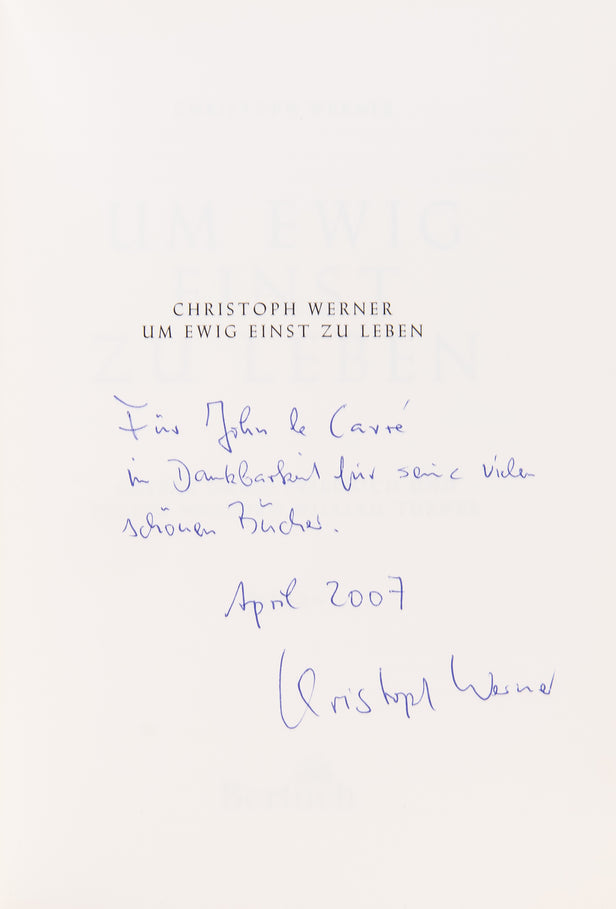 CHRISTOPH WERNER
UM EWIG EINST ZU LEBEN
Für John le Carré
in Dankbarkeit für seine vielen
schönen Bücher.
April 2007
Christoph Werner